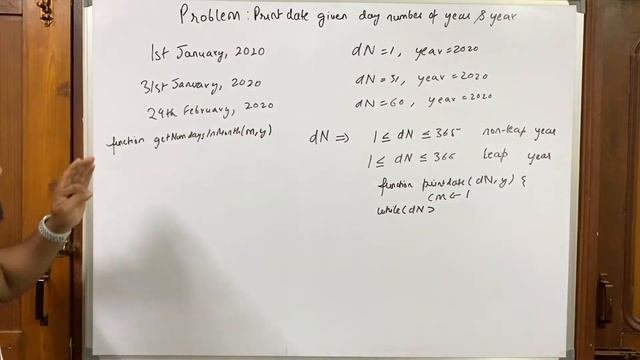 Problem: Print date given day number of year & year
1st January, 2020
dN=1, year=2020
31st January, 2020
dN=31, year=2020
29th February, 2020
dN=60, year=2020
function getNumdaysInMonth(m,y)
dN ⇒ 1 ≤ dN ≤ 365 non-leap year
1 ≤ dN ≤ 366 leap year
function printdate(dN,y) {
cm ← 1
while(dN >